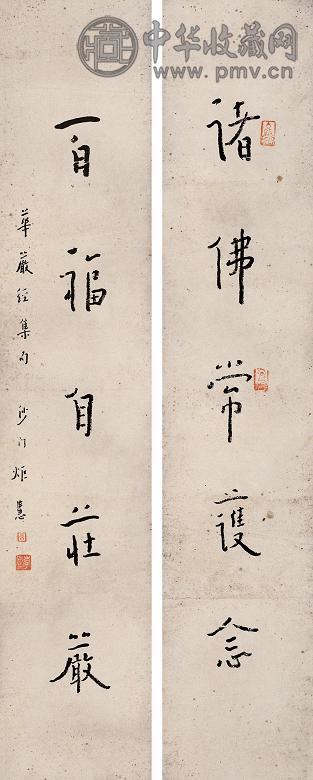 中华收藏网
www.pmv.cn
諸佛常護念
百福自莊嚴
華嚴經集句 沙门炬慧